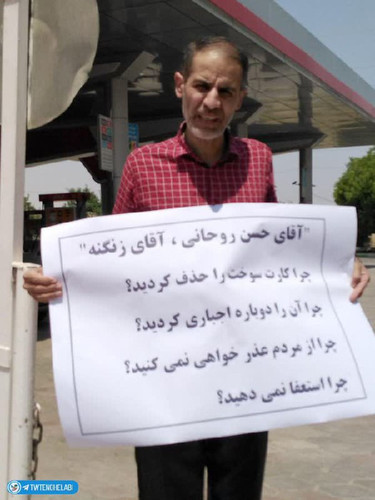 "آقای حسن روحانی ، آقای زنگنه"
چرا کارت سوخت را حذف کردید؟
چرا آن را دوباره اجباری کردید؟
چرا از مردم عذر خواهی نمی کنید؟
چرا استعفا نمی دهید؟
TWTENGHELABI